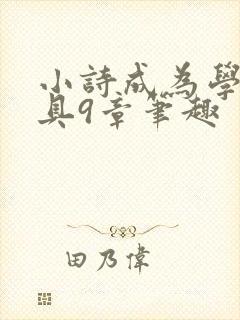 小詩成為學
具9章筆趣
田乃偉